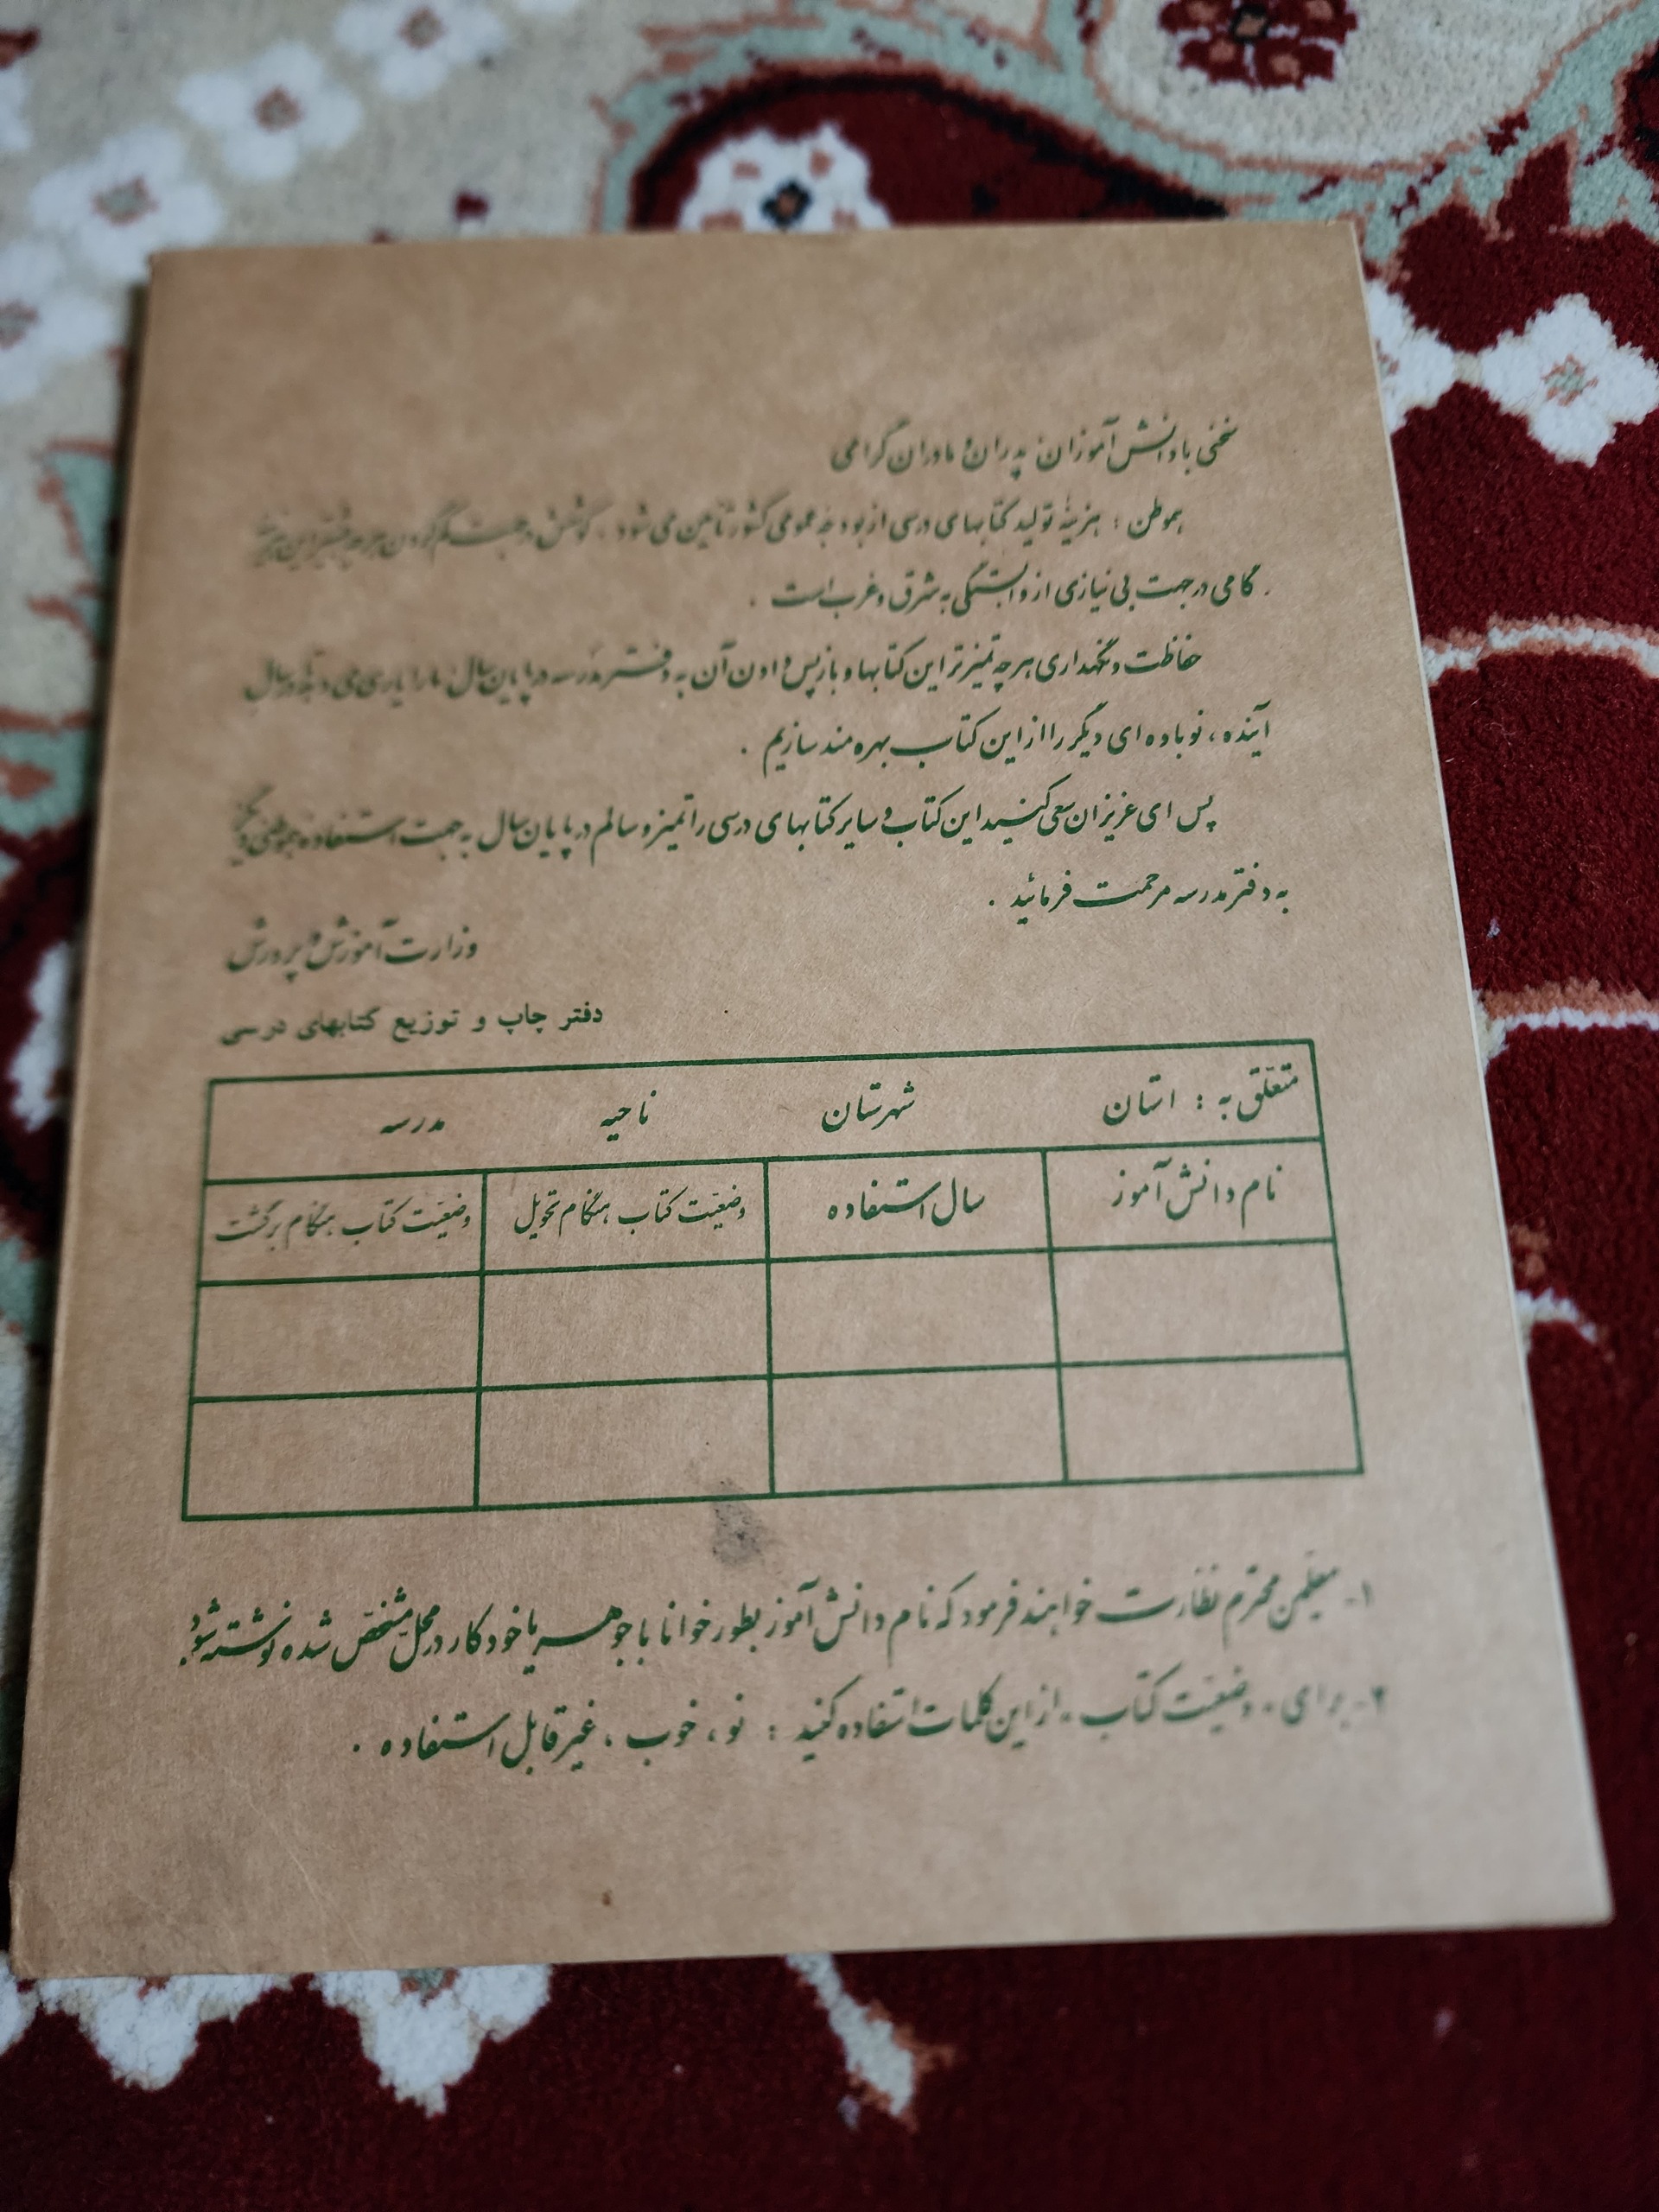 سخنی با دانش‌آموزان، پدران و مادران گرامی
هموطن : هزینهٔ تولید کتابهای درسی از بودجه عمومی کشور تأمین می‌شود ، کوشش در جهت کم کردن هر چه بیشتر این هزینه
گامی در جهت بی‌نیازی از وابستگی به شرق و غرب است .
حفاظت و نگهداری هر چه تمیزتر این کتابها و بازپس دادن آن به دفتر مدرسه در پایان سال، ما را یاری می‌دهد تا در سال
آینده ، نوباوه‌ای دیگر را از این کتاب بهره‌مند سازیم .
پس ای عزیزان سعی کنید این کتاب و سایر کتابهای درسی را تمیز و سالم در پایان سال به جهت استفاده هموطنی دیگر
به دفتر مدرسه مرحمت فرمائید .
وزارت آموزش و پرورش
دفتر چاپ و توزیع کتابهای درسی
متعلّق به : استان شهرستان ناحیه مدرسه
نام دانش‌آموز سال استفاده وضعیّت کتاب هنگام تحویل وضعیّت کتاب هنگام برگشت
۱- معلمین محترم نظارت خواهند فرمود که نام دانش‌آموز بطور خوانا با جوهر یا خودکار در محلّ مشخّص شده نوشته شود.
۲- برای «وضعیّت کتاب» از این کلمات استفاده کنید : نو ، خوب ، غیرقابل استفاده .